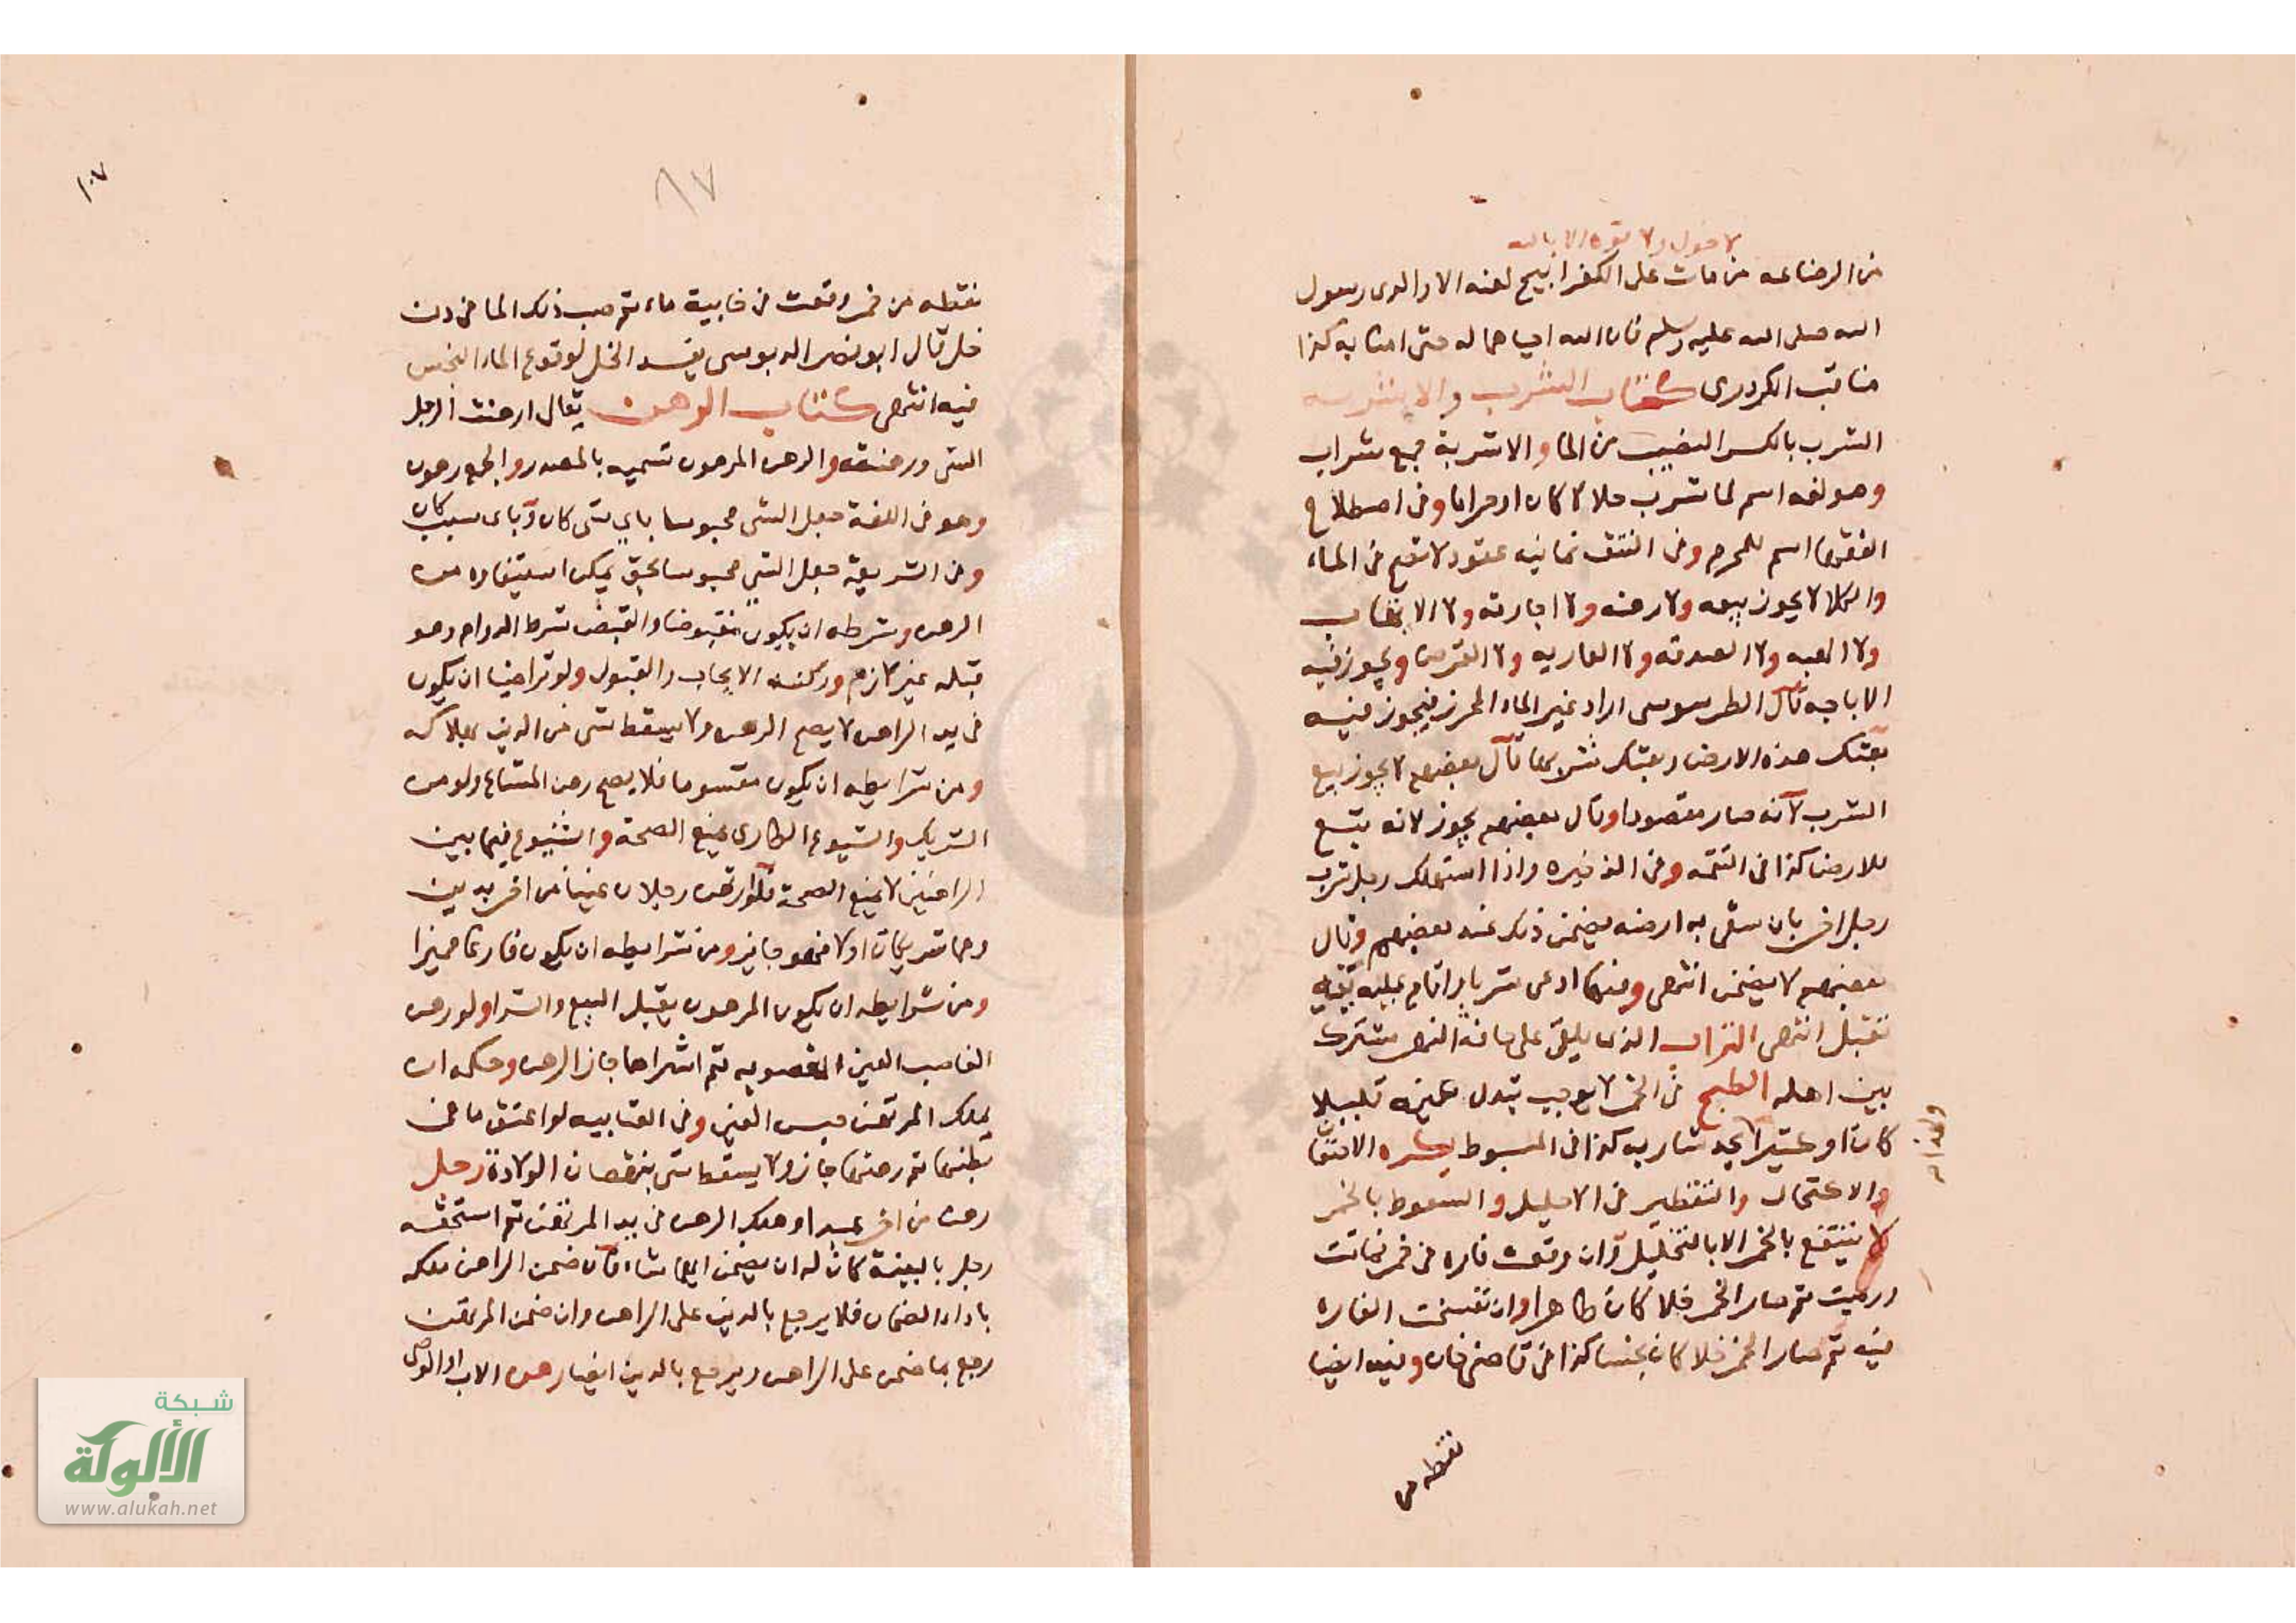 لا حول ولا قوة الا بالله
من الرضاعه من مات على الكفر ابيح لعنه الا والدى رسول
الله صلى الله عليه وسلم فان الله احياهما له حتى امنا به كذا
مناقب الكردرى كتاب الشرب والاشربه
الشرب بالكسر النصيب من الما والاشربة جمع شراب
وهو لغه اسم لما شرب حلالا كان او حراما وفى اصطلاح
الفقها اسم للمحرم وفى النتف ثمانيه عقود لا تقع فى الماء
والكلا لا يجوز بيعه ولا رهنه ولا اجارته ولا
ولا الهبه ولا الصدقه ولا العاريه ولا القرض ويجوز فيه
الاباحه قال الطرسوسى اراد غير الماء المحرز فيجوز فيه
بعتك هذه الارض وبعتك شربها قال بعضهم لا يجوز بيع
الشرب لانه صار مقصودا وقال بعضهم يجوز لانه يتبع
للارض كذا فى التتمه وفى الذخيره واذا استهلك رجل شرب
رجل اخر بان سقى به ارضه يضمن ذلك عند بعضهم وقال
بعضهم لا يضمن انتهى وفيها ادعى شربا واقام عليه بينه
تقبل انتهى التراب الذى يلقى على حافة النهر مشترك
بين اهله الطبخ فى الخمر لا يوجب تبدل عينه قليلا
كان او كثيرا يحد شاربه كذا فى المبسوط يكره الاحتقان
والاكتحال والتقطير فى الاحليل والسعوط بالخمر
لا ينتفع بالخمر الا بالتخليل وان وقعت فاره فى خمر فماتت
ورميت ثم صار الخمر خلا كان طاهرا وان تفسخت الفاره
فيه ثم صار الخمر خلا كان نجسا كذا فى قاضى خان وفيه ايضا
نقطه من
١٠٧
٨٧
نقطه من خمر وقعت فى خابية ماء ثم صب ذلك الما فى دن
خل قال ابو نصر الدبوسى يفسد الخل لوقوع الماء النجس
فيه انتهى كتاب الرهن يقال ارهنت الرجل
الشى ورهنته والرهن المرهون تسميه بالمصدر والجمع رهون
وهو فى اللغة جعل الشى محبوسا باى شى كان وباى سبب كان
وفى الشريعة جعل الشى محبوسا بحق يمكن استيفاوه من
الرهن وشرطه ان يكون مقبوضا والقبض شرط الدوام وهو
قبله غير لازم وركنه الايجاب والقبول ولو تراضيا ان يكون
فى يد الراهن لا يصح الرهن ولا يسقط شى من الدين بهلاكه
ومن شرايطه ان يكون مقسوما فلا يصح رهن المشاع ولو من
الشريك والشيوع الطارى يمنع الصحة والشيوع فيما بين
الراهنين لا يمنع الصحة فلو ارتهن رجلان عينا من اخر بدين
وهما شريكان اولا فهو جايز ومن شرايطه ان يكون فارغا مميزا
ومن شرايطه ان يكون المرهون يقبل البيع والشرا ولو رهن
الغاصب العين المغصوبه ثم اشتراها جاز الرهن وحكمه ان
يملك المرتهن حبس العين وفى العتابيه لو اعتق ما فى
بطنها ثم رهنها جاز ولا يسقط شى بنقصان الولادة رجل
رهن من اخر عبدا وهلك الرهن فى يد المرتهن ثم استحقه
رجل بالبينة كان له ان يضمن ايهما شاء فان ضمن الراهن ملكه
باداء الضمان فلا يرجع بالدين على الراهن وان ضمن المرتهن
رجع بما ضمن على الراهن ويرجع بالدين ايضا رهن الاب او الوصى
شبكة
الألوكة
www.alukah.net